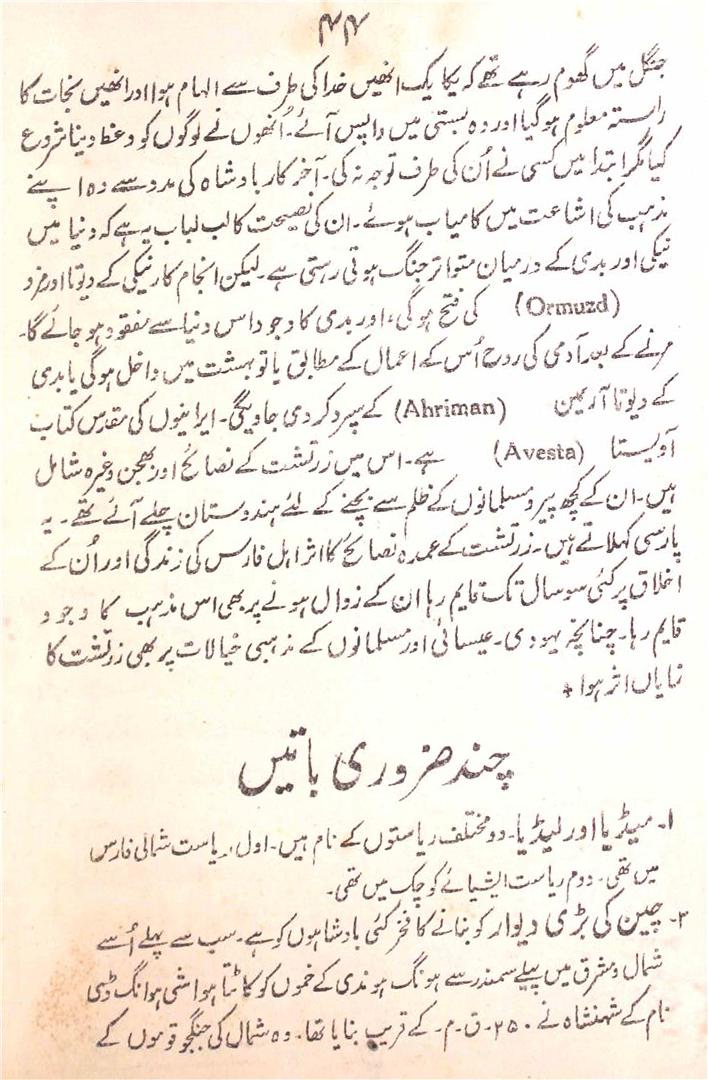 ۴۴
جنگل میں گھوم رہے تھے کہ یکایک انھیں خدا کی طرف سے الہام ہوا اور انھیں نجات کا
راستہ معلوم ہو گیا اور وہ بستی میں واپس آئے۔ اُنھوں نے لوگوں کو وعظ دینا شروع
کیا مگر ابتدا میں کسی نے اُن کی طرف توجہ نہ کی۔ آخر کار بادشاہ کی مدد سے وہ اپنے
مذہب کی اشاعت میں کامیاب ہوئے۔ ان کی نصیحت کا لب لباب یہ ہے کہ دنیا میں
نیکی اور بدی کے درمیان متواتر جنگ ہوتی رہتی ہے۔ لیکن انجام کار نیکی کے دیوتا اورمزد
(Ormuzd) کی فتح ہوگی، اور بدی کا وجود اس دنیا سے مفقود ہو جائے گا۔
مرنے کے بعد آدمی کی روح اُس کے اعمال کے مطابق یا تو بہشت میں داخل ہوگی یا بدی
کے دیوتا آریمن (Ahriman) کے سپرد کر دی جاویگی۔ ایرانیوں کی مقدس کتاب
آویستا (Avesta) ہے۔ اس میں زرتشت کے نصائح اور بھجن وغیرہ شامل
ہیں۔ ان کے کچھ پیرو مسلمانوں کے ظلم سے بچنے کے لئے ہندوستان چلے آئے تھے۔ یہ
پارسی کہلاتے ہیں۔ زرتشت کے عمدہ نصائح کا اثر اہل فارس کی زندگی اور اُن کے
اخلاق پر کئی سو سال تک قایم رہا ان کے زوال ہونے پر بھی اس مذہب کا وجود
قایم رہا۔ چنانچہ یہودی۔ عیسائی اور مسلمانوں کے مذہبی خیالات پر بھی زرتشت کا
نمایاں اثر ہوا +
چند ضروری باتیں
۱۔ میڈیا اور لیڈیا۔ دو مختلف ریاستوں کے نام ہیں۔ اول ریاست شمالی فارس
میں تھی۔ دوم ریاست ایشیائے کوچک میں تھی۔
۲۔ چین کی بڑی دیوار کو بنانے کا فخر کئی بادشاہوں کو ہے۔ سب سے پہلے اُسے
شمال و مشرق میں پیلے سمندر سے ہونگ ہو ندی کے خموں کو کاٹتا ہوا شی ہوانگ ٹی
نام کے شہنشاہ نے ۲۵۰۔ ق۔م۔ کے قریب بنایا تھا۔ وہ شمال کی جنگجو قوموں کے